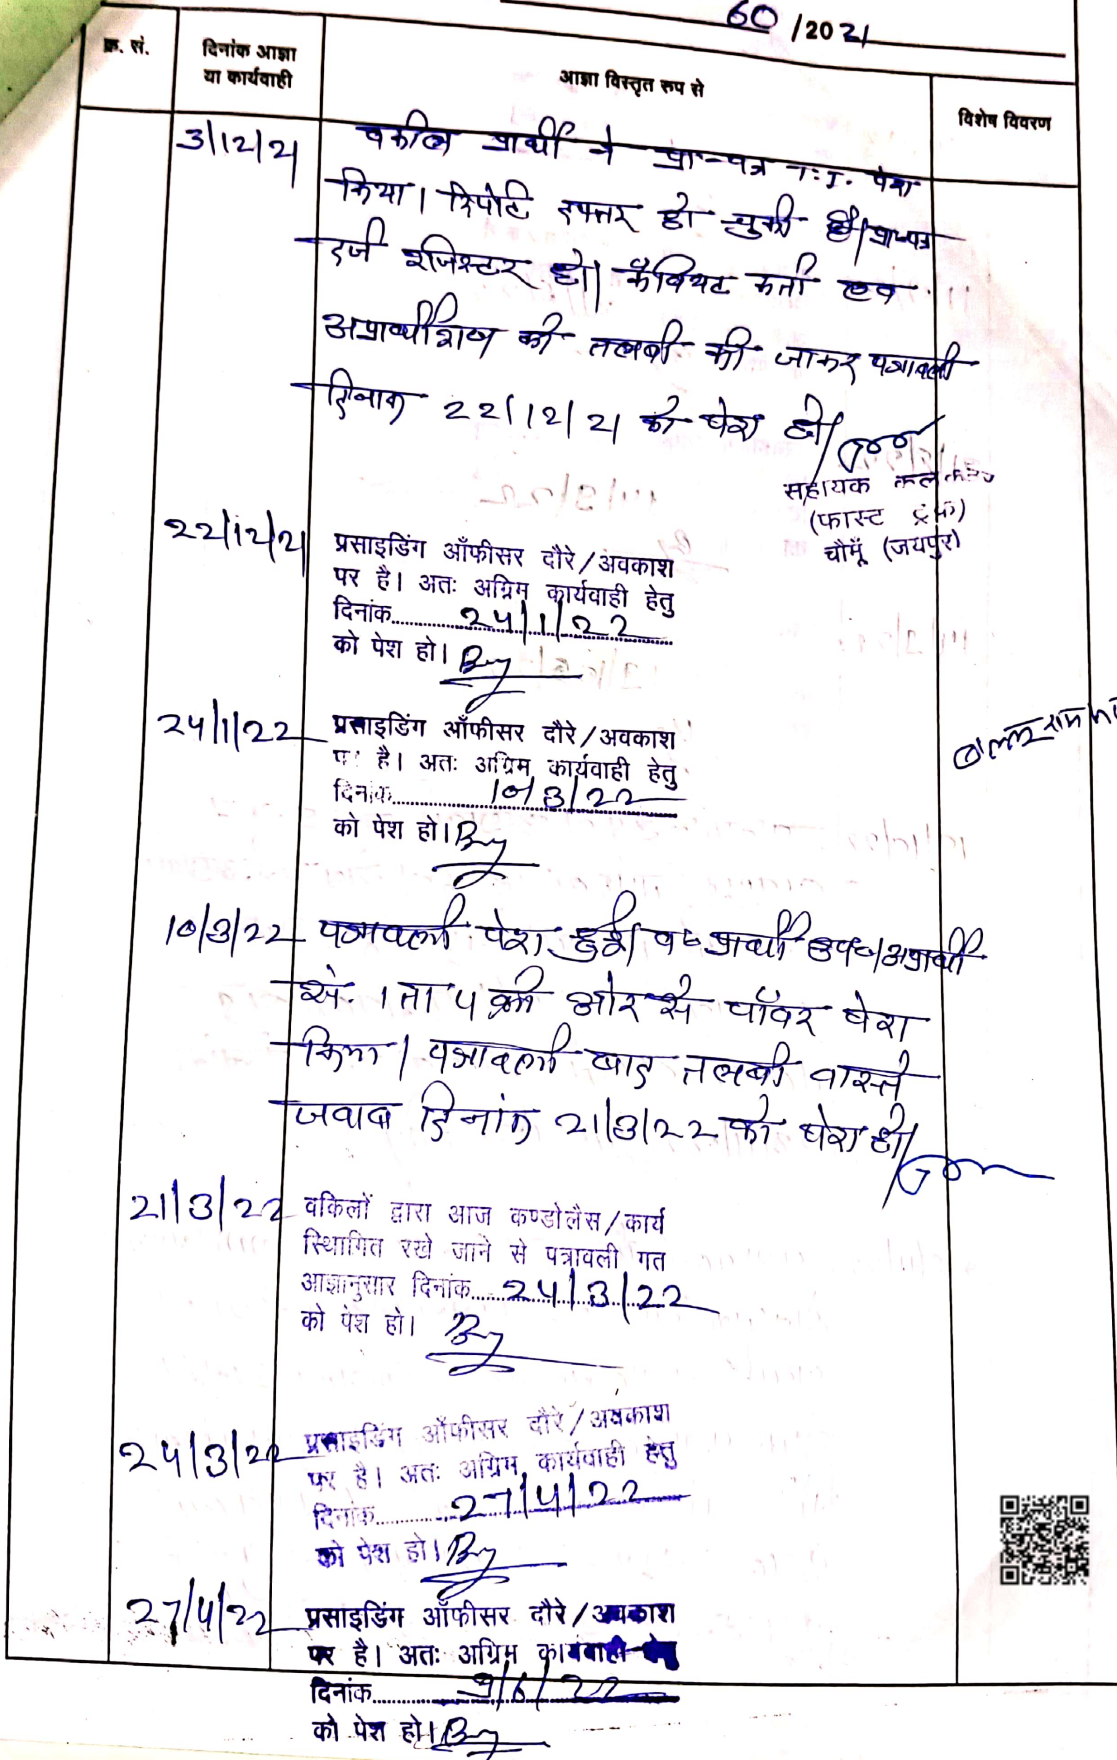 60/2021
क्र. सं.
दिनांक आज्ञा
या कार्यवाही
आज्ञा विस्तृत रूप से
विशेष विवरण
3/12/21
वकील प्रार्थी ने प्रा-पत्र T.I. पेश
किया। रिपोर्ट दफ्तर हो चुकी है। प्रा-पत्र
दर्ज रजिस्टर हो। कैवियट कर्ता एव
अप्रार्थीगण की तलबी की जाकर पत्रावली
दिनांक 22/12/21 को पेश हो।
सहायक कलक्टर
(फास्ट ट्रेक)
चौमूँ (जयपुर)
22/12/21
प्रसाइडिंग ऑफीसर दौरे/अवकाश
पर है। अतः अग्रिम कार्यवाही हेतु
दिनांक 24/1/22
को पेश हो।
24/1/22
प्रसाइडिंग ऑफीसर दौरे/अवकाश
पर है। अतः अग्रिम कार्यवाही हेतु
दिनांक 10/3/22
को पेश हो।
10/3/22
पत्रावली पेश हुई। व० प्रार्थी उप०। अप्रार्थी
सं. 1 ता 4 की ओर से पॉवर पेश
किया। पत्रावली बाद तलबी वास्ते
जवाब दिनांक 21/3/22 को पेश हो।
21/3/22
वकिलों द्वारा आज कण्डोलैस/कार्य
स्थिागित रखे जाने से पत्रावली गत
आज्ञानुसार दिनांक 24/3/22
को पेश हो।
24/3/22
प्रसाइडिंग ऑफीसर दौरे/अवकाश
पर है। अतः अग्रिम कार्यवाही हेतु
दिनांक 27/4/22
को पेश हो।
27/4/22
प्रसाइडिंग ऑफीसर दौरे/अवकाश
पर है। अतः अग्रिम कार्यवाही हेतु
दिनांक 9/6/22
को पेश हो।